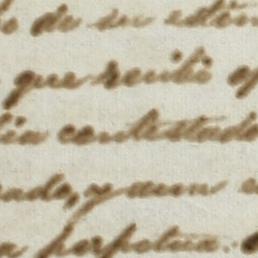 de su estim
que recibi
ia contestado
nado, y aun
perpetua.